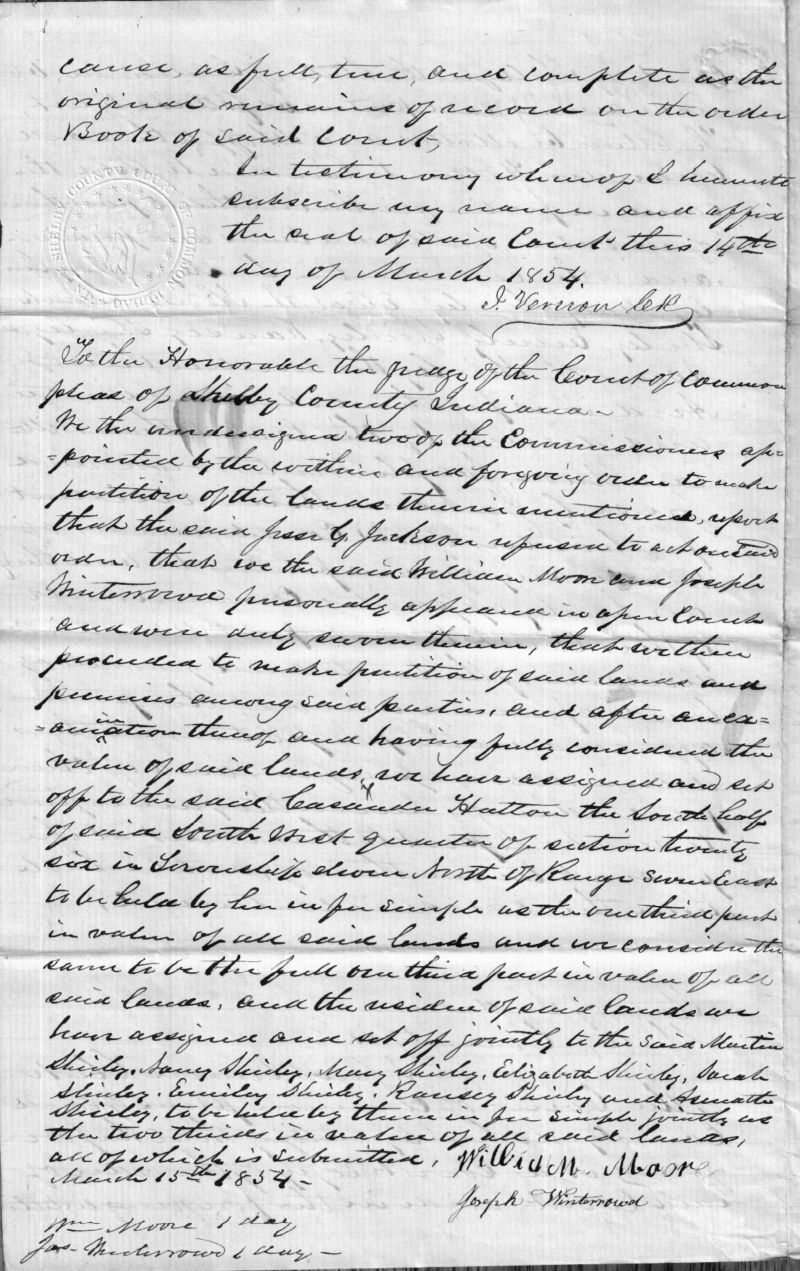 cause, as full, true, and complete as the
original remains of record on the order
Book of said Court,
In testimony whereof I hereunto
subscribe my name and affix
the seal of said Court this 14th
day of March 1854.
J. Vernon Clk
SHELBY COUNTY COURT OF COMMON PLEAS
INDIANA
To the Honorable the judge of the Court of Common
pleas of Shelby County Indiana -
We the undersigned two of the Commissioners ap=
=pointed by the within and forgoing order to make
partition of the lands therein mentioned, report
that the said Jesse G. Jackson refused to act on said
order, that we the said William Moore and Joseph
Winterrowd personally appeared in open Court
and were duly sworn therein, that we then
proceeded to make partition of said lands and
premises among said parties, and after an exa=
=amination thereof and having fully considered the
value of said lands, we have assigned and set
off to the said Casander Hatton the South half
of said South West quarter of section twenty
six in Township eleven North of Range seven East
to be held by her in fee simple as the one third part
in value of all said lands and we consider the
same to be the full one third part in value of all
said lands, and the residue of said lands we
have assigned and set off jointly to the said Martin
Shirley, Nancy Shirley, Mary Shirley, Elizabeth Shirley, Sarah
Shirley, Emiley Shirley, Ransey Shirley and Asenatha
Shirley, to be held by them in fee simple jointly as
the two thirds in value of all said lands,
all of which is submitted,
March 15th 1854 -
William Moore
Joseph Winterrowd
Wm Moore 1 day
Jos. Winterrowd 1 day -